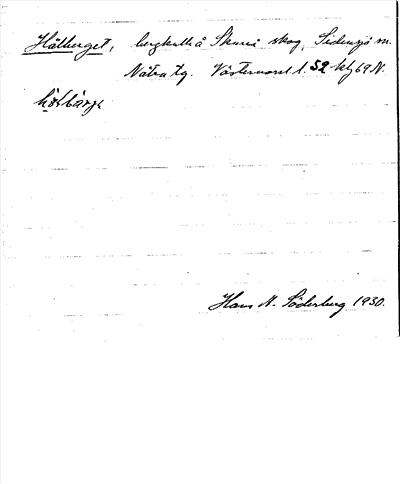 Hålberget, bergkulle å Skurii skog, Sidensjö sn.
Nätra tg. Västernorrl. l. 52 ktbl 69 N.
hó̀lbær̀jə
Hans N. Söderberg 1930.